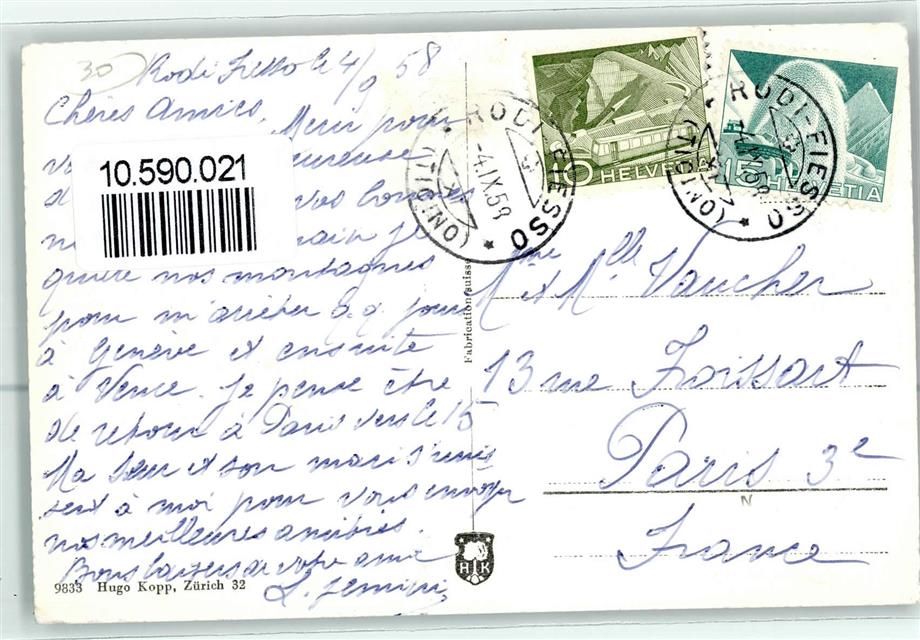 30
Rodi Fiesso le 4/9 58
Chères Amies,
Merci pour
10.590.021
vos bonnes
je
quitte nos montagnes
pour m'arrêter q.q. jours
à Genève et ensuite
à Vence. Je pense être
de retour à Paris vers le 15
Ma sœur et son mari s'unis
sent à moi pour vous envoyer
nos meilleures amitiés.
Bons baisers de votre amie
9833 Hugo Kopp, Zürich 32
Fabrication suisse
H K
RODI-FIESSO
(TICINO)
-4.IX.58
10 HELVETIA
RODI-FIESSO
(TICINO)
-4.IX.58
15 HELVETIA
Mme et Mlle Vaucher
13 rue Froissart
Paris 3e
N
France